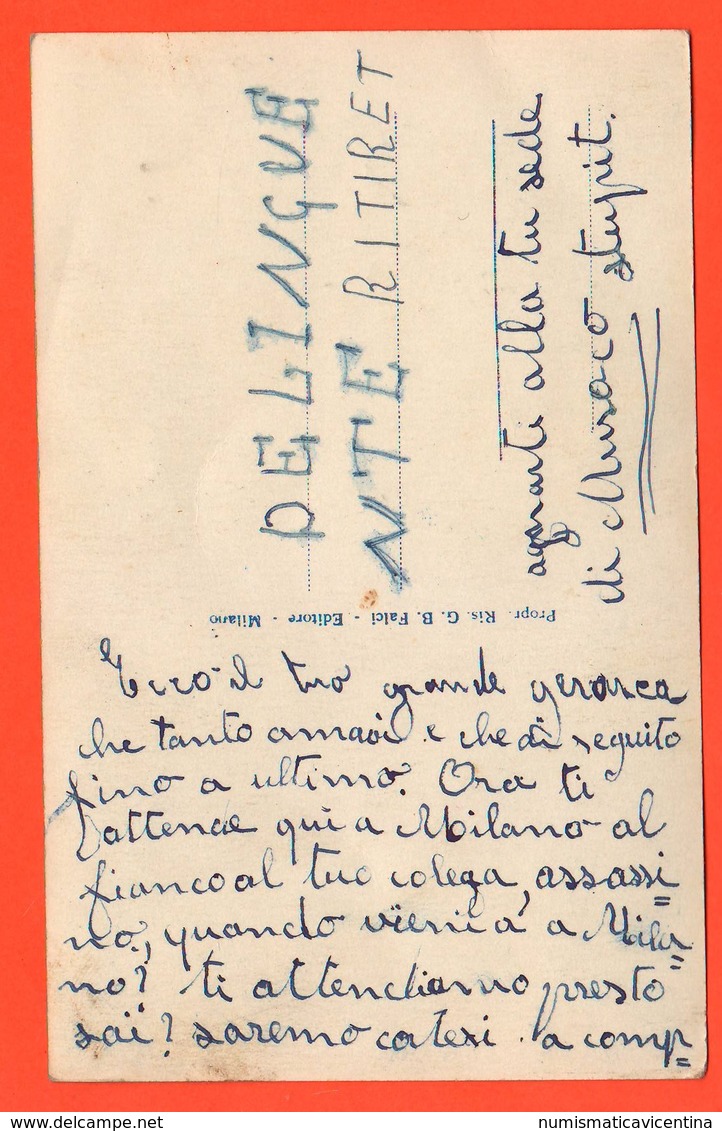 Ecco il tuo grande gerarca
che tanto amavi e che ai seguito
fino a ultimo. Ora ti
attende qui a Milano al
fianco al tuo colega, assassi=
no, quando vieni a Mila=
no? ti attendiamo presto
sai? saremo cortesi a comp=
agnarti alla tu sede
di Musoco stupit.
DELINGUE
NTE RITIRET
Propr. Ris. G. B. Falci - Editore - Milano
numismaticavicentina